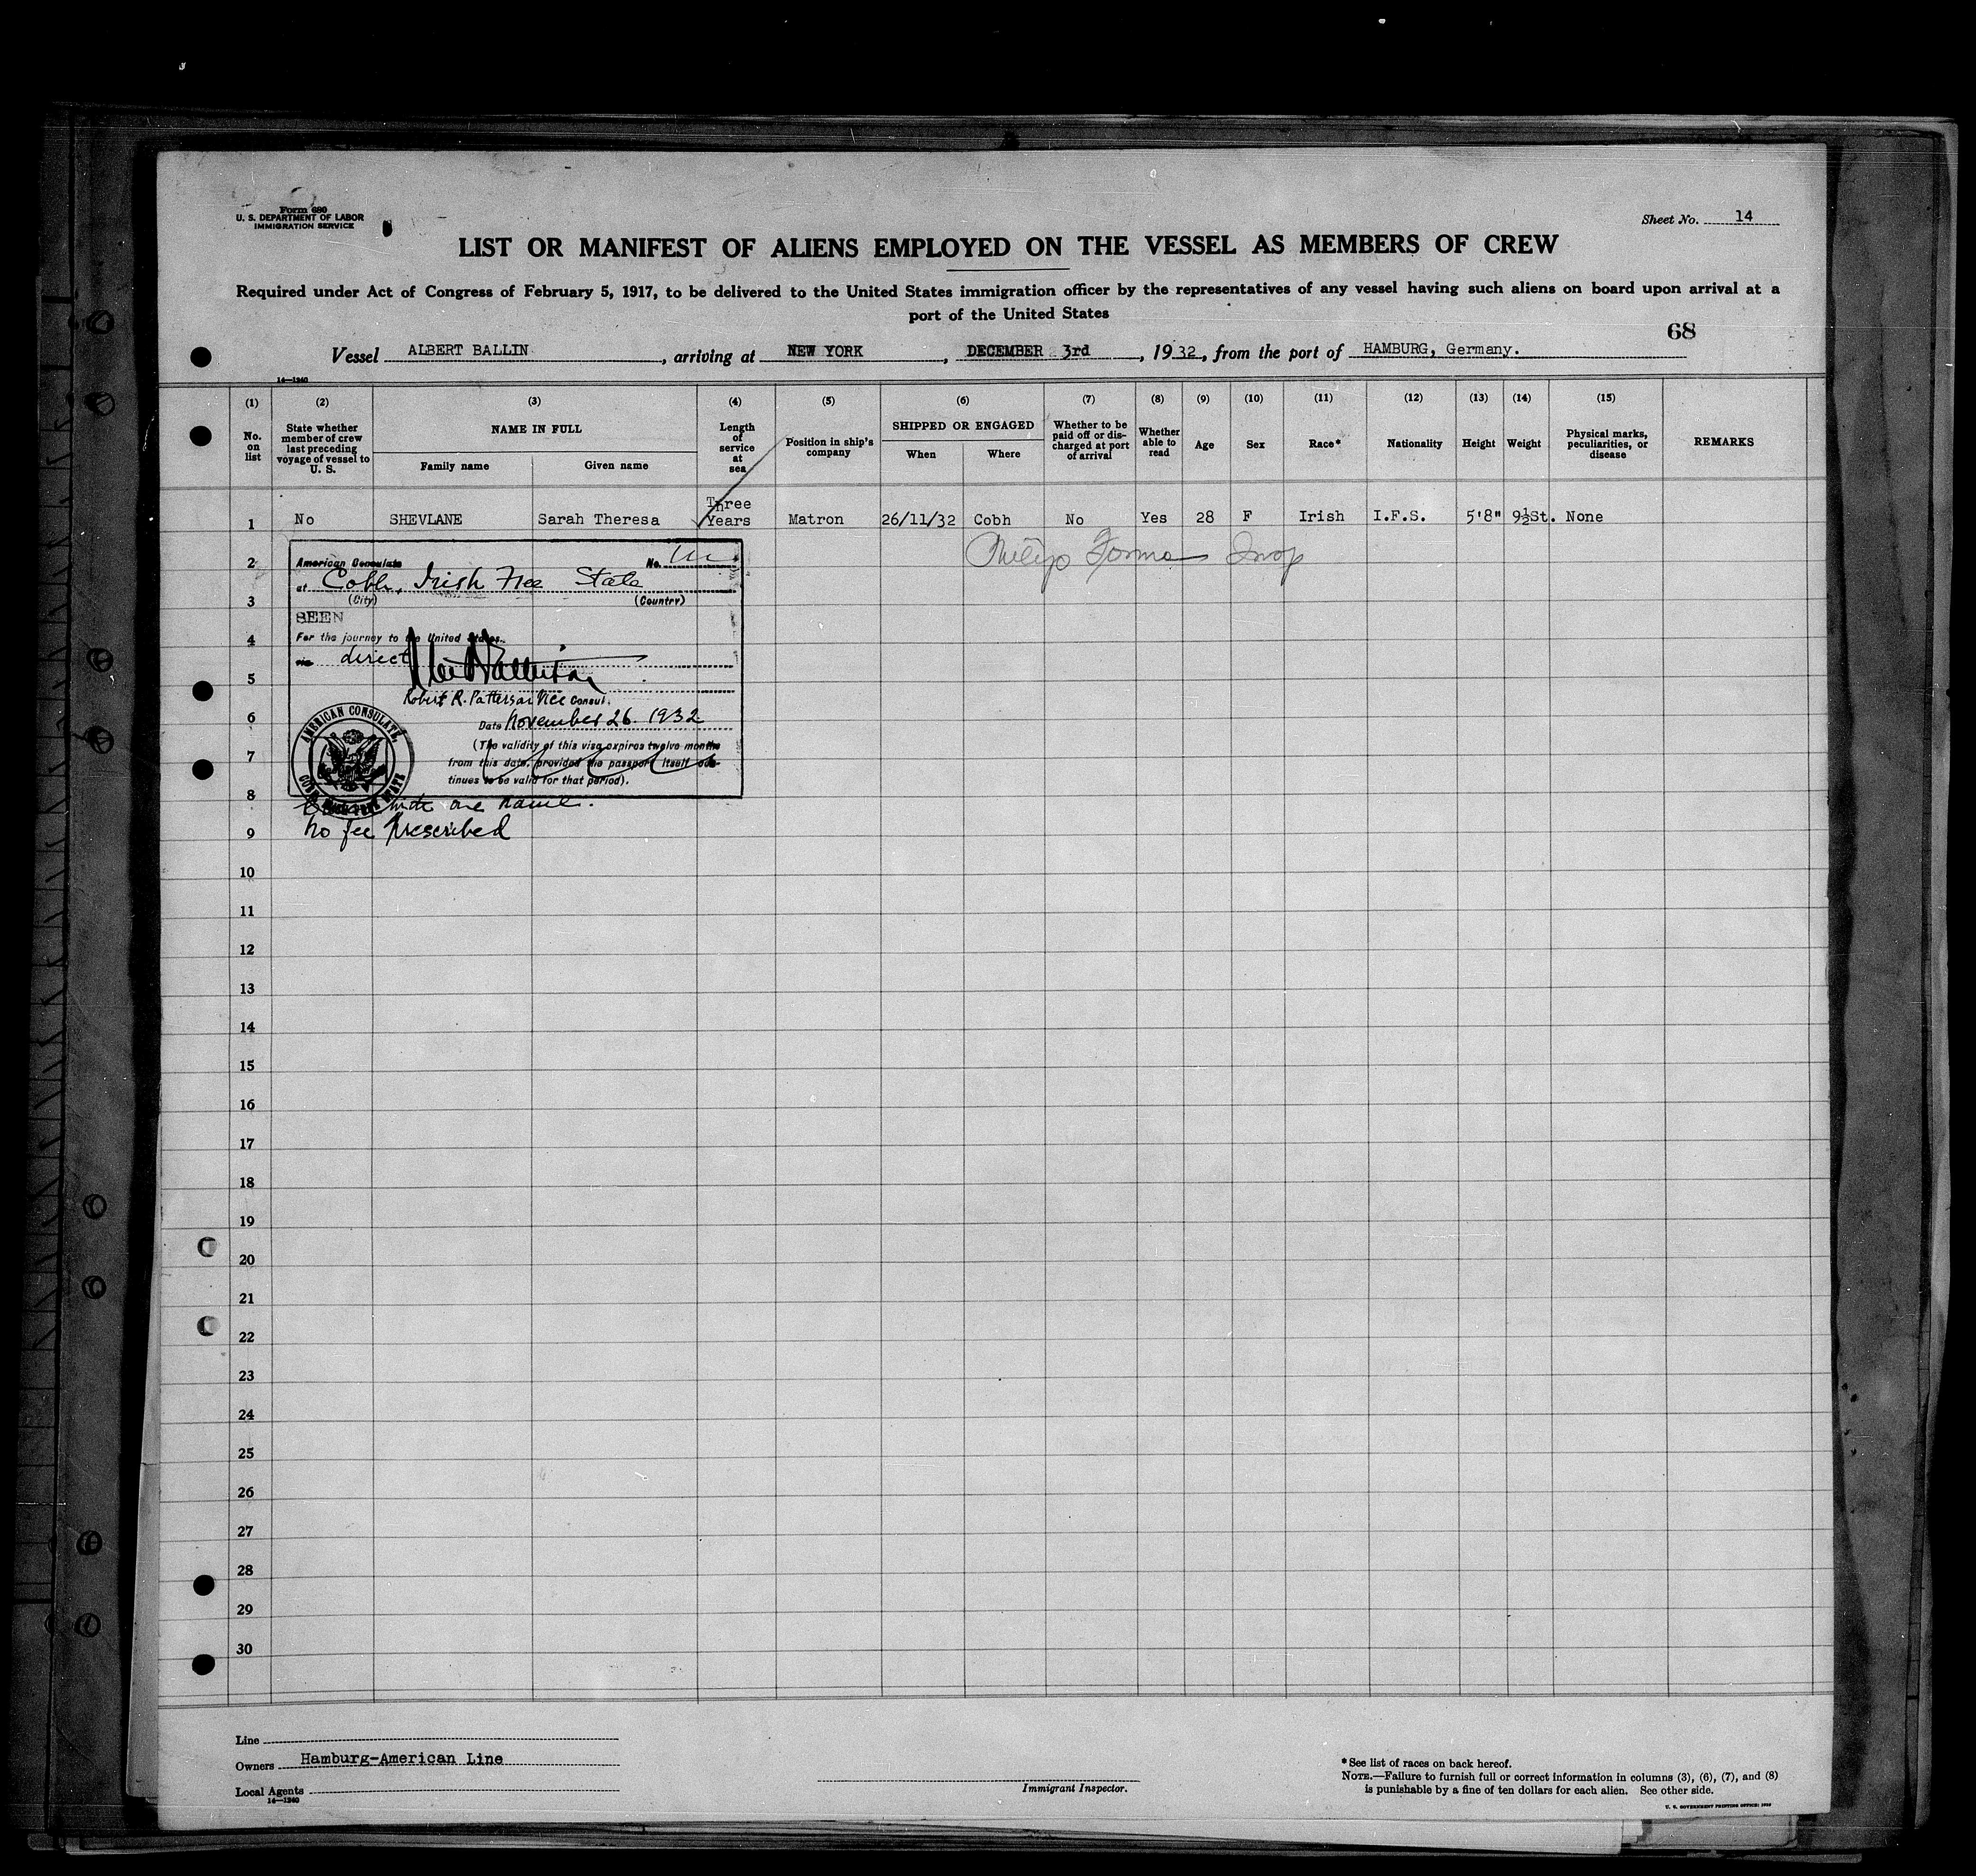 Form 680
U. S. DEPARTMENT OF LABOR
IMMIGRATION SERVICE
Sheet No. 14
LIST OR MANIFEST OF ALIENS EMPLOYED ON THE VESSEL AS MEMBERS OF CREW
Required under Act of Congress of February 5, 1917, to be delivered to the United States immigration officer by the representatives of any vessel having such aliens on board upon arrival at a
port of the United States
68
Vessel ALBERT BALLIN, arriving at NEW YORK, DECEMBER 3rd, 1932, from the port of HAMBURG, Germany.
14—1240
(1) (2) (3) (4) (5) (6) (7) (8) (9) (10) (11) (12) (13) (14) (15)
No. on list
State whether member of crew last preceding voyage of vessel to U. S.
NAME IN FULL
Family name
Given name
Length of service at sea
Position in ship's company
SHIPPED OR ENGAGED
When
Where
Whether to be paid off or discharged at port of arrival
Whether able to read
Age
Sex
Race*
Nationality
Height
Weight
Physical marks, peculiarities, or disease
REMARKS
1 No SHEVLANE Sarah Theresa Three Years Matron 26/11/32 Cobh No Yes 28 F Irish I.F.S. 5'8" 9½St. None
2
3
4
5
6
7
8
9
10
11
12
13
14
15
16
17
18
19
20
21
22
23
24
25
26
27
28
29
30
American Consulate No.
at Cobh, Irish Free State
(City) (Country)
SEEN
For the journey to the United States
via direct
Robert R. Patterson Vice Consul.
Date November 26. 1932
(The validity of this visa expires twelve months
from this date, provided the passport itself con-
tinues to be valid for that period).
AMERICAN CONSULATE,
with one name.
No fee prescribed
Line
Owners Hamburg-American Line
Local Agents
14—1240
Immigrant Inspector.
* See list of races on back hereof.
NOTE.—Failure to furnish full or correct information in columns (3), (6), (7), and (8)
is punishable by a fine of ten dollars for each alien. See other side.